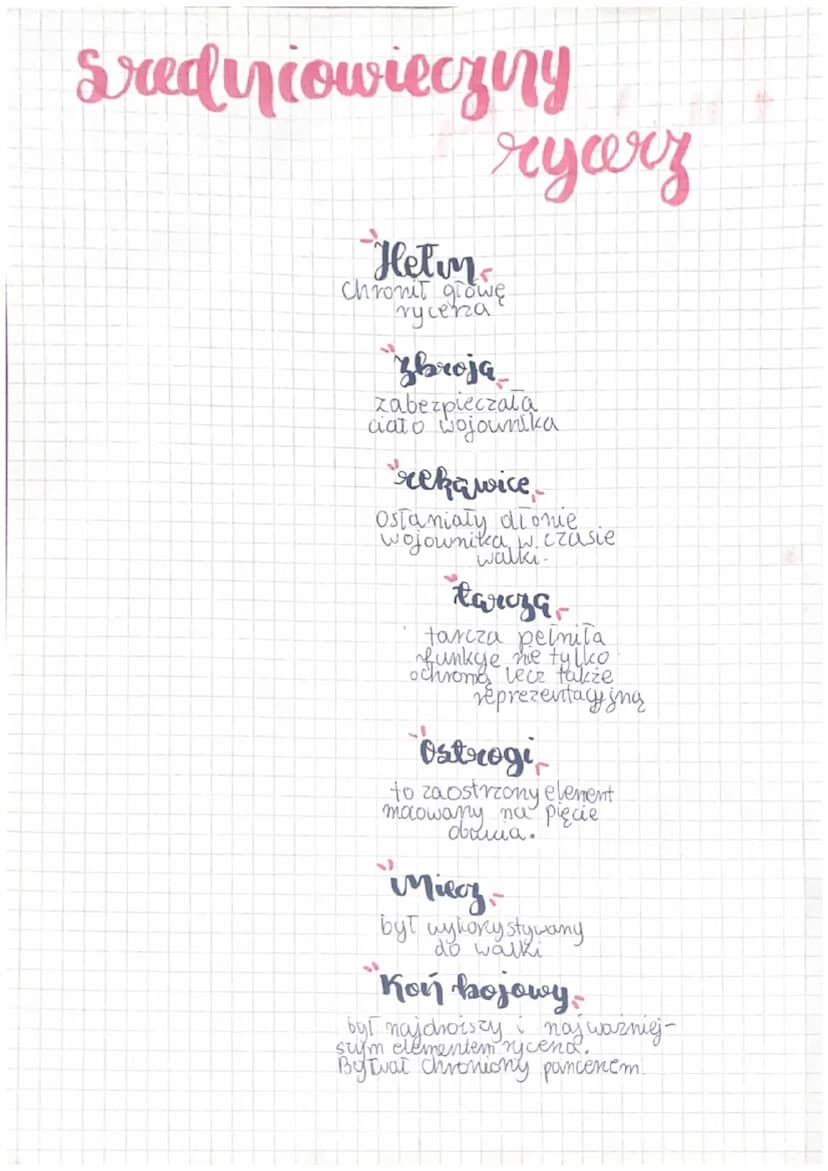 średniowieczny
rycerz
Hełm
chronił głowę
rycerza
zbroja
zabezpieczała
ciało wojownika
rękawice
osłaniały dłonie
wojownika w czasie
walki.
tarcza
tarcza pełniła
funkcje nie tylko
ochronną lecz także
reprezentacyjną
Ostrogi
to zaostrzony element
mocowany na pięcie
obuwia.
Miecz
był wykorzystywany
do walki
Koń bojowy
był najdroższy i najważniej-
szym elementem rycerza.
Bywał chroniony pancerzem